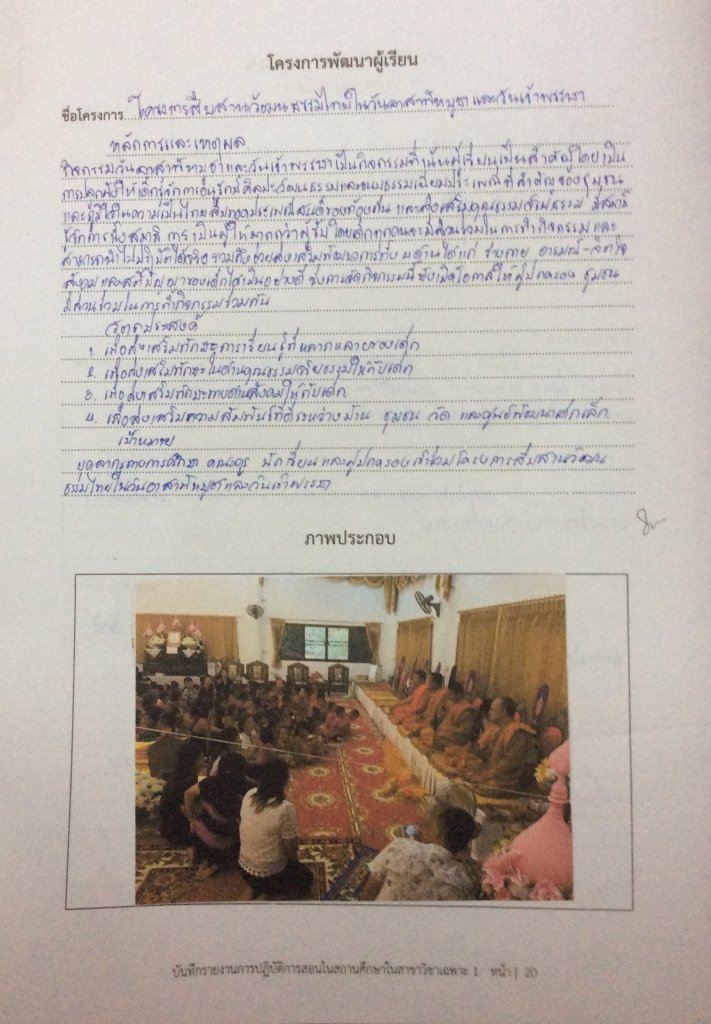 โครงการพัฒนาผู้เรียน
ชื่อโครงการ โครงการสืบสานวัฒนธรรมไทยในวันอาสาฬหบูชาและวันเข้าพรรษา
หลักการและเหตุผล
กิจกรรมวันอาสาฬหบูชาและวันเข้าพรรษาเป็นกิจกรรมที่เน้นผู้เรียนเป็นสำคัญโดยเป็น
การปลูกฝังให้เด็กรู้จักการอนุรักษ์ศิลปะวัฒนธรรมและขนบธรรมเนียมประเพณีที่สำคัญของชุมชน
และภูมิใจในความเป็นไทย สืบทอดประเพณี ของท้องถิ่น และส่งเสริมคุณธรรมจริยธรรม มีสมาธิ
รู้จักการนั่งสมาธิ การเป็นผู้ให้มากกว่าผู้รับโดยเด็กทุกคนจะมีส่วนร่วมในการทำกิจกรรมและ
สามารถนำไปใช้ รวมถึงช่วยส่งเสริมพัฒนาการทั้ง ด้านได้แก่ ร่างกาย อารมณ์-จิตใจ
สังคมและสติปัญญาของเด็กได้เป็นอย่างดี ซึ่งการจัดกิจกรรมนี้ยังเปิดโอกาสให้ผู้ปกครอง ชุมชน
มีส่วนร่วมในการทำกิจกรรมร่วมกัน
วัตถุประสงค์
1. เพื่อส่งเสริมทักษะการเรียนรู้ที่หลากหลายของเด็ก
2. เพื่อส่งเสริมทักษะในด้านคุณธรรมจริยธรรมให้กับเด็ก
3. เพื่อส่งเสริมทักษะทางด้านสังคมให้กับเด็ก
4. เพื่อส่งเสริมความสัมพันธ์ที่ดีระหว่างบ้าน ชุมชน วัด และศูนย์พัฒนาเด็กเล็ก
เป้าหมาย
บุคลากรทางการศึกษา คณะครู นักเรียนและผู้ปกครองเข้าร่วมโครงการสืบสานวัฒน
ธรรมไทยในวันอาสาฬหบูชาและวันเข้าพรรษา
ภาพประกอบ
บันทึกรายงานการปฏิบัติการสอนในสถานศึกษาในสาขาวิชาเฉพาะ 1 หน้า | 20